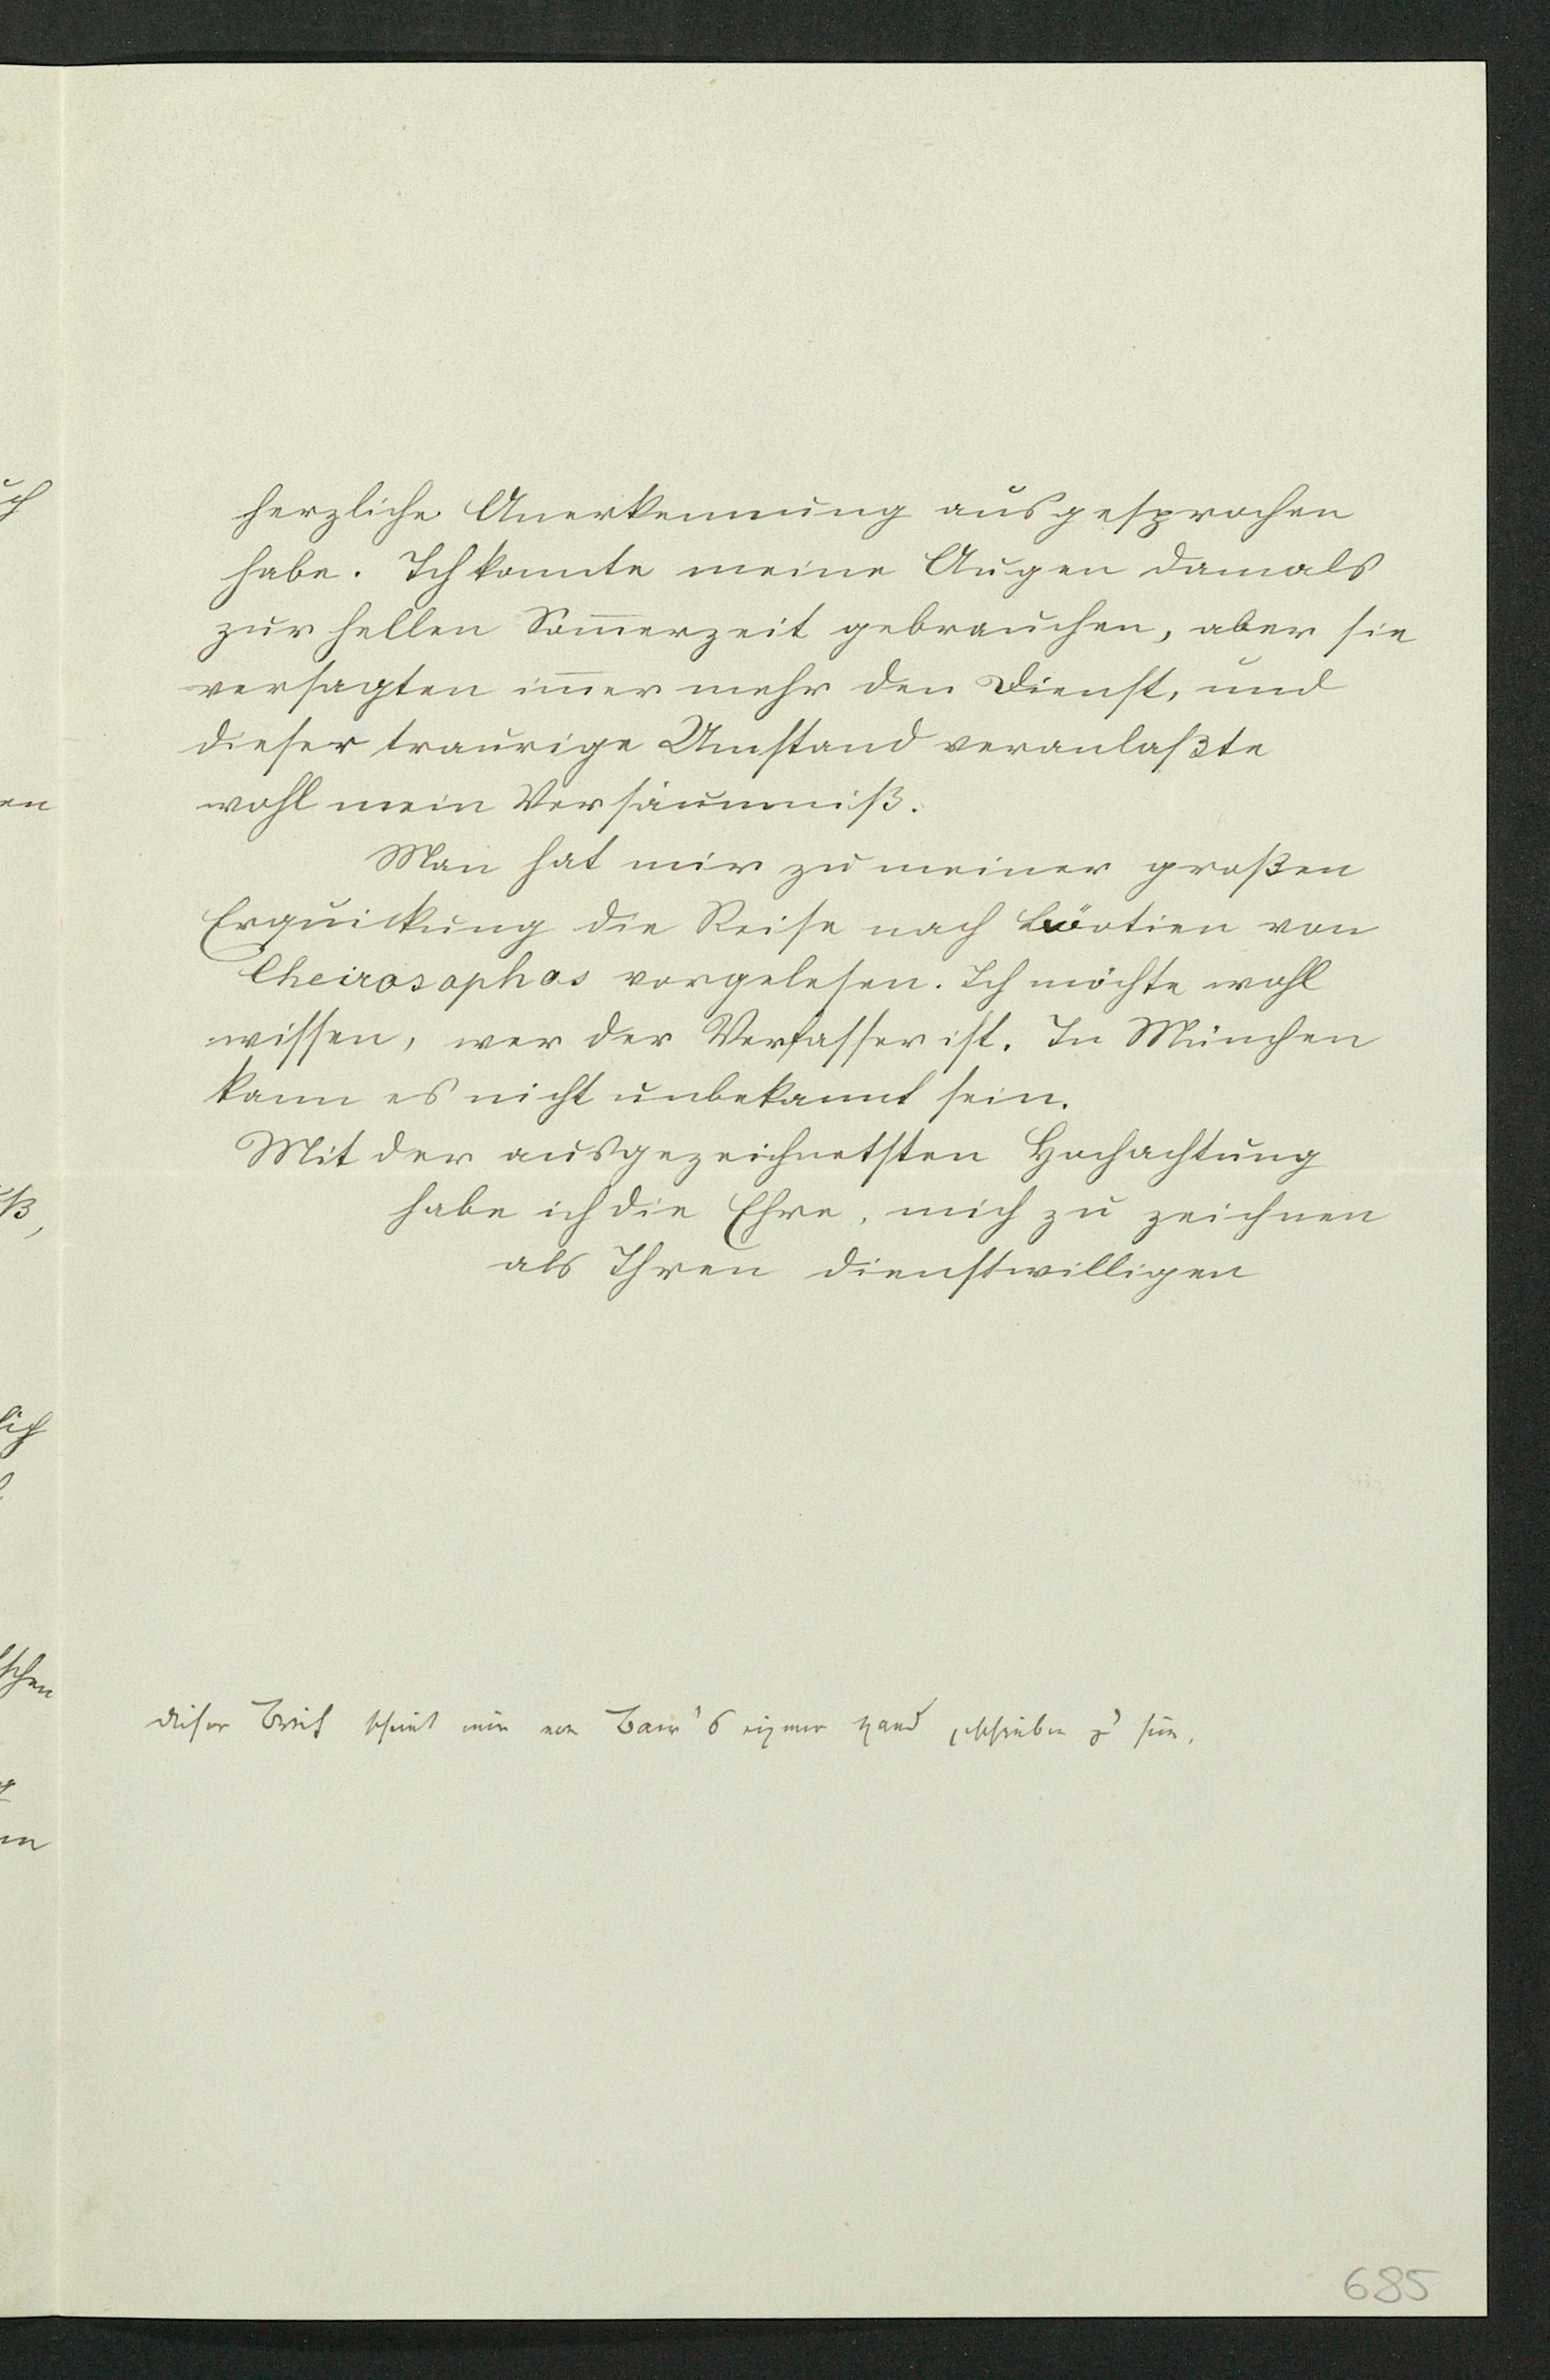 herzliche Anerkennung ausgesprochen
habe. Ich konnte meine Augen damals
zur hellen Som̄erzeit gebrauchen, aber sie
versagten im̄er mehr den Dienst, und
dieser traurige Umstand veranlaßte
wohl mein Versäumniß.
Man hat mir zu meiner großen
Erquickung die Reise nach Böotien von
Cheirosophos vorgelesen. Ich möchte wohl
wissen, wer der Verfasser ist. In München
kann es nicht unbekannt sein.
Mit der ausgezeichnetsten Hochachtung
habe ich die Ehre, mich zu zeichnen
als Ihren dienstwilligen
Dieser Brief scheint mir von Baer's eigner Hand geschrieben zu sein.
685